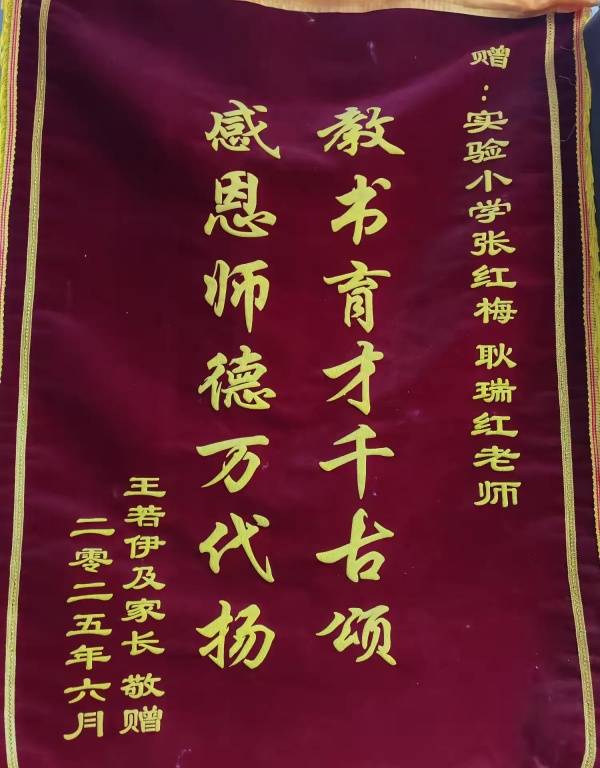 赠：实验小学张红梅 耿瑞红老师
教书育才千古颂
感恩师德万代扬
王若伊及家长 敬赠
二零二五年六月